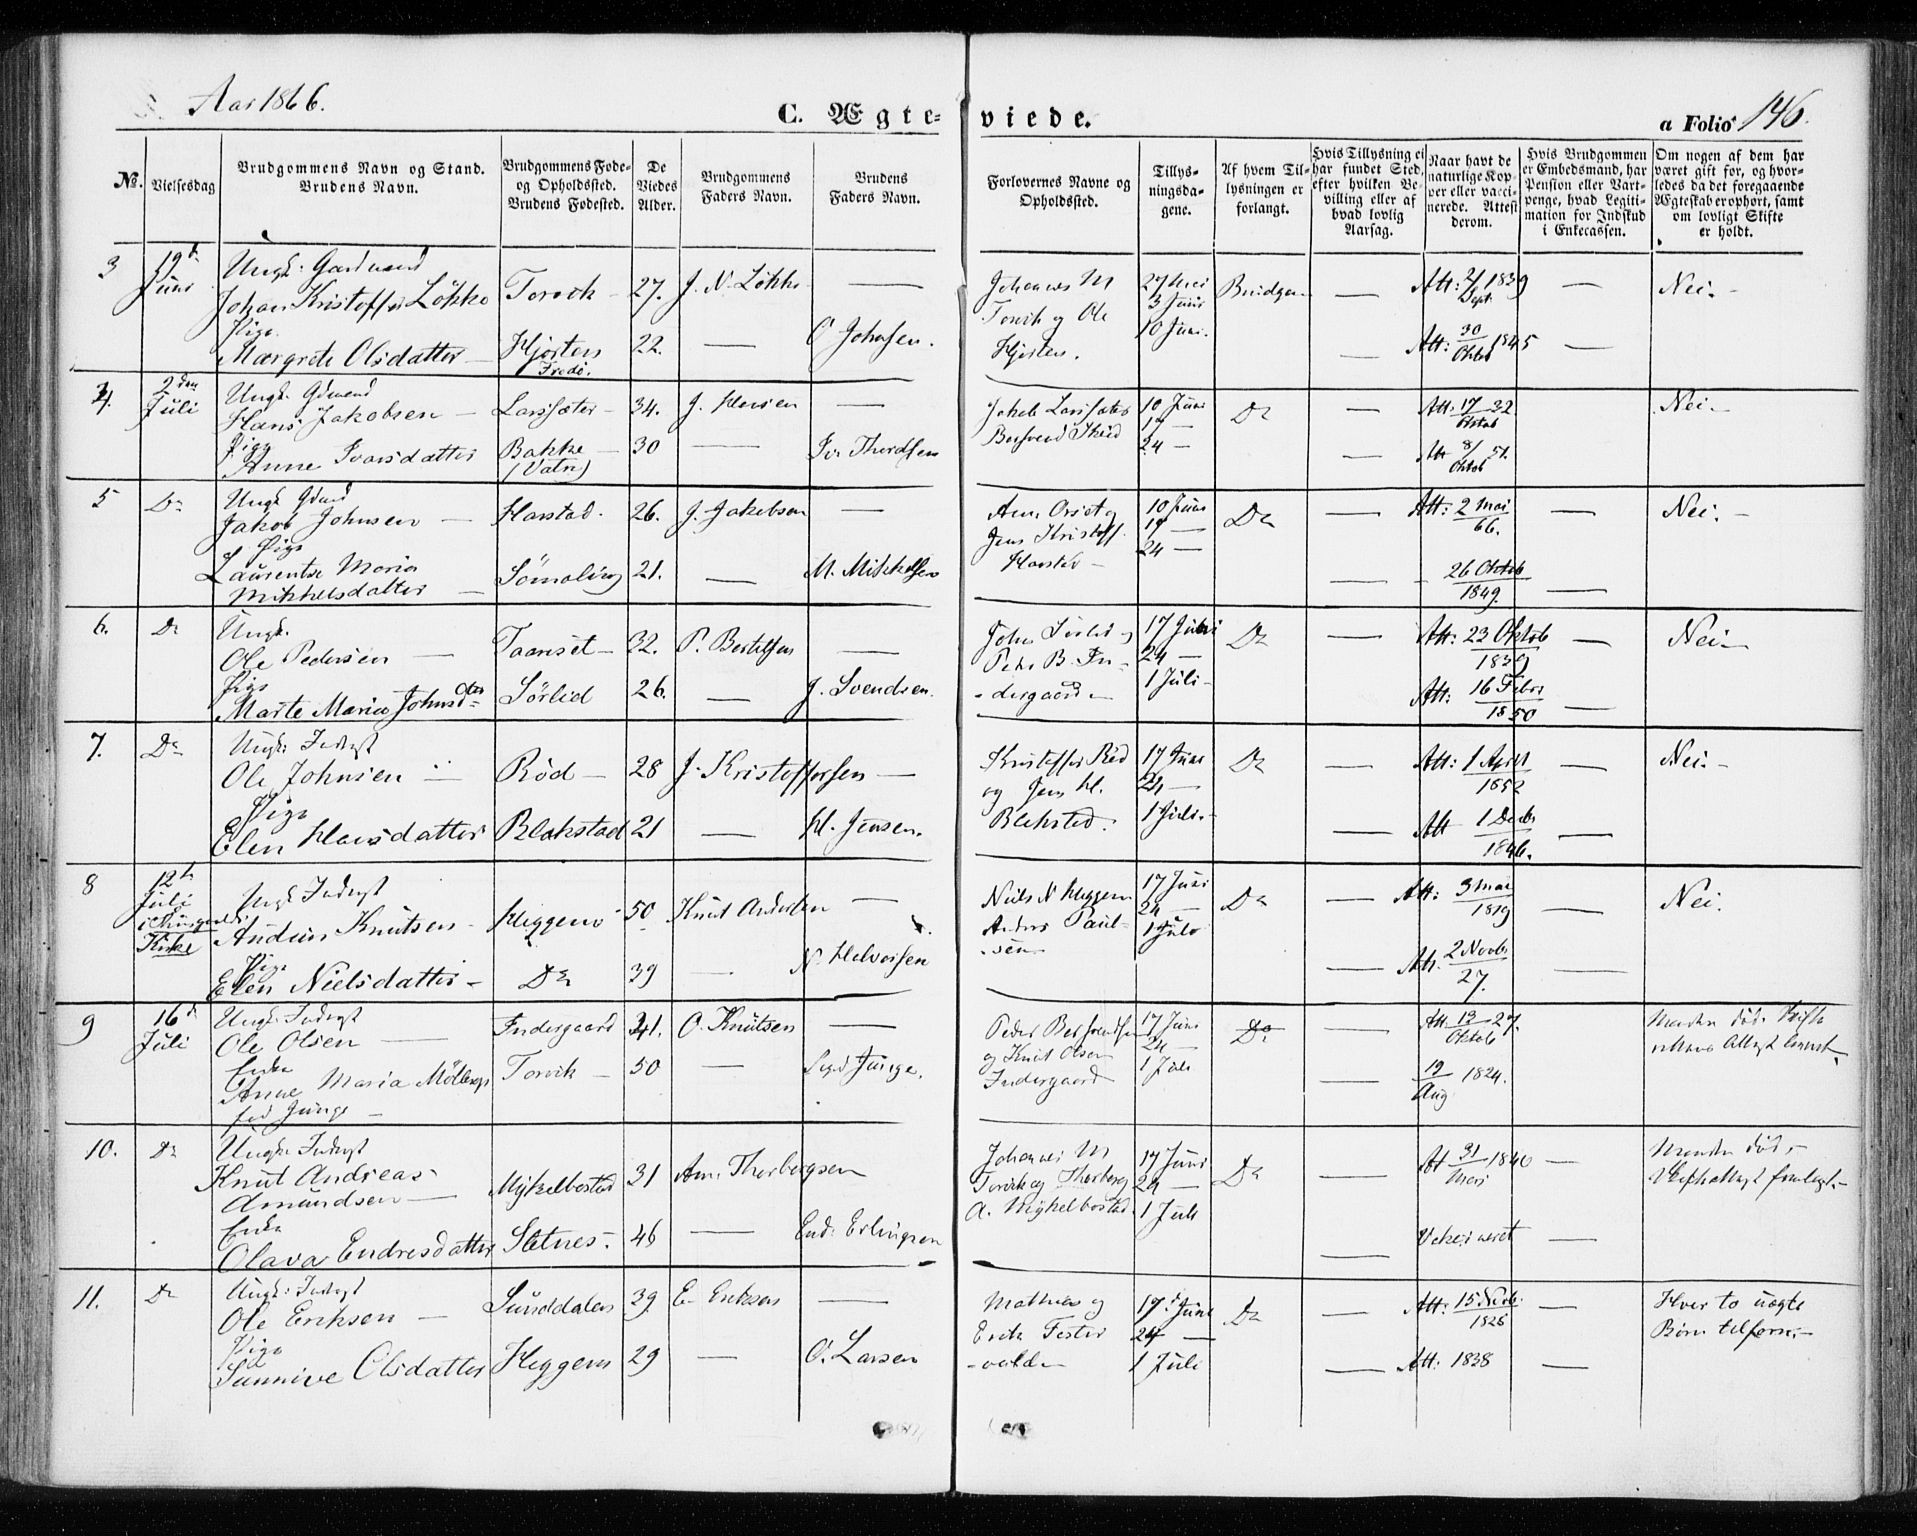 Aar 1866.
C. Ægteviede.
a Folio 146.
No.
Vielsesdag
Brudgommens Navn og Stand.
Brudens Navn.
Brudgommens Føde-
og Opholdssted.
Brudens Fødested.
De
Viedes
Alder.
Brudgommens
Faders Navn.
Brudens
Faders Navn.
Forlovernes Navne og
Opholdssted.
Tillys-
ningsda-
gene.
Af hvem Til-
lysningen er
forlangt.
Hvis Tillysning ei
har fundet Sted,
efter hvilken Be-
villing eller af
hvad lovlig
Aarsag.
Naar havt de
naturlige Kop-
per eller vacci-
nerede. Attest
derom.
Hvis Brudgommen
er Embedsmand, har
Pension eller Vart-
penge, hvad Legiti-
mation for Indskud
i Enkecassen.
Om nogen af dem har
været gift før, og hvor-
ledes da det foregaaende
Ægteskab er ophørt, samt
om lovligt Skifte
er holdt.
3
19d
Juni
Ungk: Gaardmand
Johan Kristoffer Løkke
Torvik
27.
J. N. Løkke
Pige
Margrete Olsdatter
Hjorten
Fredø.
22.
O Johnsen.
Johannes M
Torvik og Ole
Hjorten.
27 Mai
3 Juni
10 Juni.
Brudgom
Att: 2/ Sept. 1839
Att: 30/Oktob 1845
Nei.
4.
2den
Juli
Ungk. Gdmand
Hans Jakobsen
Larssæter
34.
J. Hansen
Pige
Anne Ivarsdatter
Bakke
(Vatn)
30
Iv. Thordsen
Jakob Larssæter
10 Juni
17 —
24 —
Do
Att: 17/Oktob 32
Att 8/Oktob 51.
Nei.
5
Do
Ungk Gdmand
Jakob Johnsen
Harstad.
26.
J. Jakobsen
Pige
Laurentse Maria
Mikkelsdatter
21.
M. Mikkelsen
Jens Kristoff.
Harstad
10 Juni
17 —
24 —
Do
Att: 2 Mai
66.
26 Oktob
1849.
Nei.
6.
Do
Ungk.
Ole Pedersen
Taanset
32.
P. Bertelsen
Pige
Marte Maria Johnsdtr
Sørlid
26.
J. Svendsen.
John Sørlid og
Peder B. In-
dergaard
17 Juni
24 —
1 Juli
Do
Att: 23 Oktob
1839
Att: 16 Febr
1850
Nei
7.
Do
Ungk: Inderst
Ole Johnsen
Rød
28
J. Kristoffersen
Pige
Elen Hansdatter
Blakstad
21
H. Jensen.
Kristoffer Rød
og Jens H.
Blakstad.
17 Juni
24 —
1 Juli.
Do
Att: 1 April
1852
Att 1 Decb
1846.
Nei.
8
12te
Juli
i Thingvold
Kirke
Ungk Inderst
Anders Knutsen
Heggem
50
Knut Andersen
Pige
Elen Nielsdatter
Do
39
N. Halvorsen
Niels N Heggem
Anders Paul-
sen
17 Juni
24 —
1 Juli
Do
Att: 3 Mai
1819
Att. 2 Novb.
27.
Nei.
9
16d
Juli
Ungk. Inderst
Ole Olsen
Indergaard
41.
O. Knutsen
Enke
Anne Maria
fød Junge
Torvik
50
Junge.
Peder
og Knut Olsen
Indergaard
17 Juni
24 —
1 Juli
Do
Att. 13/Oktob 27.
19/Aug 1824.
Manden død.
10.
Do
Ungk. Inderst
Knut Andreas
Amundsen
Mykelbostad
31
Am. Thorbergsen
Enke
Olava Endresdatter
46
End. Erlingsen
Johannes M
Torvik og Thorberg
A. Mykelbostad
17 Juni
24 —
1 Juli
Do
At 31/Mai 1840
Manden død.
11.
Do
Ungk: Inderst
Ole Eriksen
Sunddalen
39
E. Eriksen
Pige
Sunnive Olsdatter
Heggem
29
O. Larsen
Mathias og
Erik
17d Juni
24 —
1 Juli
Do
Att: 15 Novb.
1828
Att: 1838
Hver to uægte
Børn tilforn.